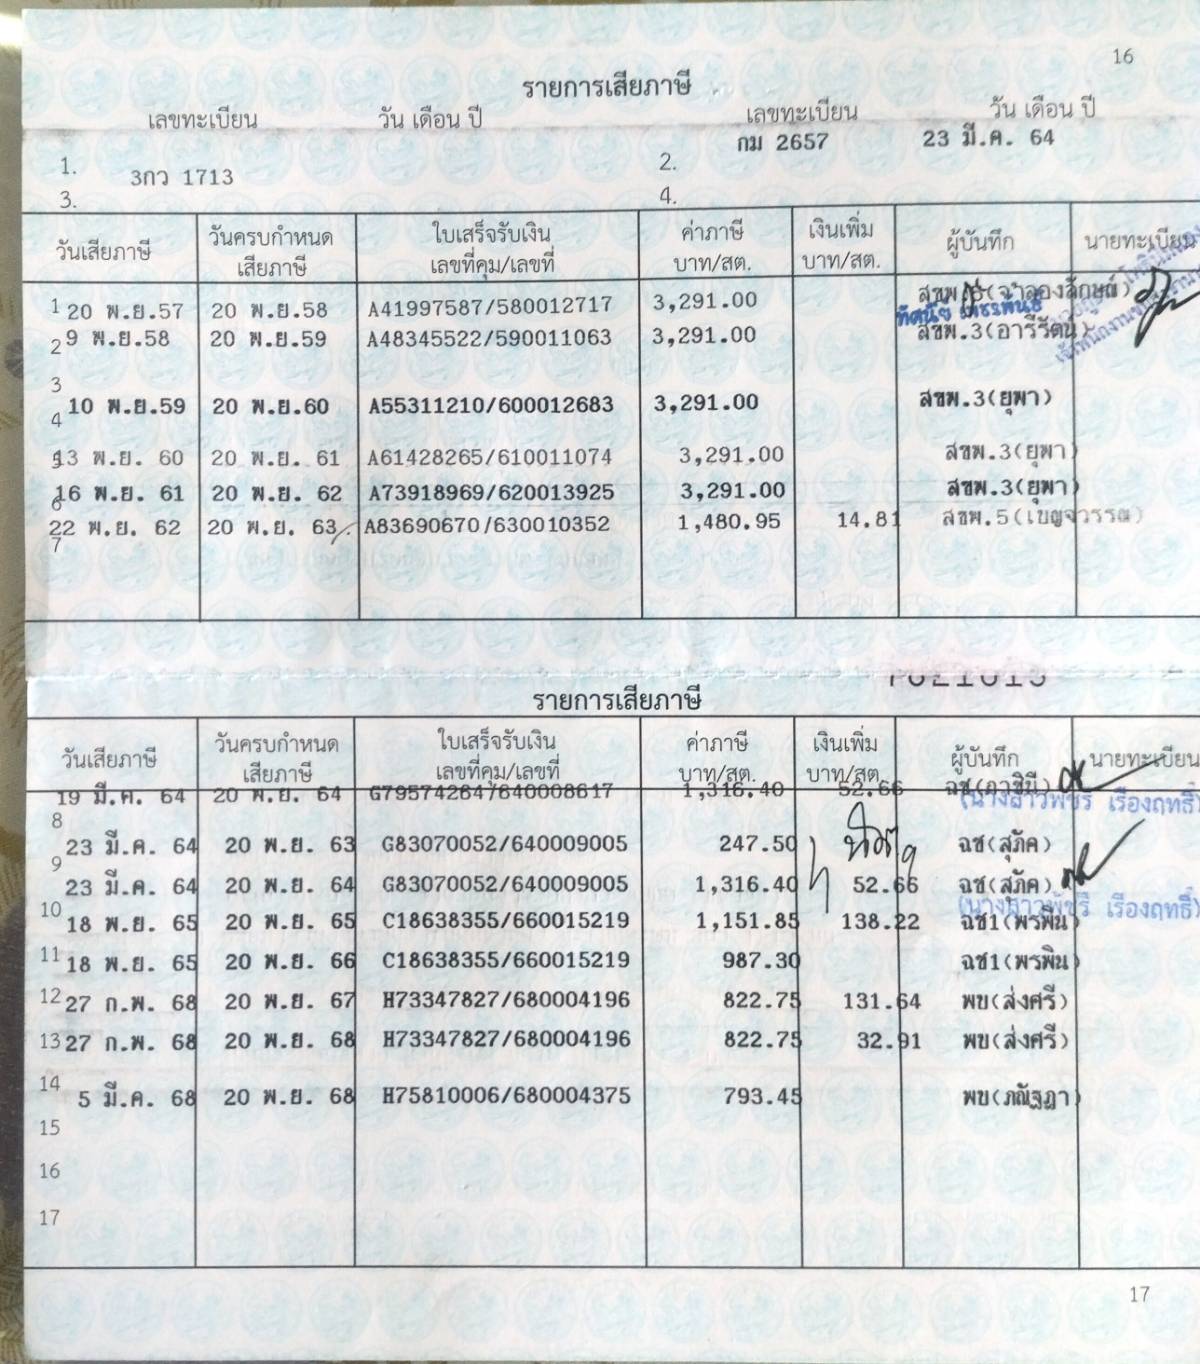 16
รายการเสียภาษี
เลขทะเบียน วัน เดือน ปี เลขทะเบียน วัน เดือน ปี
1. 3กว 1713 2. กม 2657 23 มี.ค. 64
3. 4.
วันเสียภาษี วันครบกำหนดเสียภาษี ใบเสร็จรับเงิน เลขที่คุม/เลขที่ ค่าภาษี บาท/สต. เงินเพิ่ม บาท/สต. ผู้บันทึก นายทะเบียน
1 20 พ.ย.57 20 พ.ย.58 A41997587/580012717 3,291.00
2 9 พ.ย.58 20 พ.ย.59 A48345522/590011063 3,291.00 สขพ.3(อารีรัตน์)
3
4 10 พ.ย.59 20 พ.ย.60 A55311210/600012683 3,291.00 สขพ.3(ยุพา)
5 13 พ.ย. 60 20 พ.ย. 61 A61428265/610011074 3,291.00 สขพ.3(ยุพา)
6 16 พ.ย. 61 20 พ.ย. 62 A73918969/620013925 3,291.00 สขพ.3(ยุพา)
7 22 พ.ย. 62 20 พ.ย. 63 A83690670/630010352 1,480.95 14.81 สขพ.5(เบญจวรรณ)
รายการเสียภาษี
วันเสียภาษี วันครบกำหนดเสียภาษี ใบเสร็จรับเงิน เลขที่คุม/เลขที่ ค่าภาษี บาท/สต. เงินเพิ่ม บาท/สต. ผู้บันทึก นายทะเบียน
19 มี.ค. 64 20 พ.ย. 64 G79574264/640008617 1,316.40 52.66
(นางสาวพัชรี เรืองฤทธิ์)
8
23 มี.ค. 64 20 พ.ย. 63 G83070052/640009005 247.50 ฉช(สุภัค)
9
23 มี.ค. 64 20 พ.ย. 64 G83070052/640009005 1,316.40 52.66 ฉช(สุภัค)
(นางสาวพัชรี เรืองฤทธิ์)
10 18 พ.ย. 65 20 พ.ย. 65 C18638355/660015219 1,151.85 138.22 ฉช1(พรพิน)
11 18 พ.ย. 65 20 พ.ย. 66 C18638355/660015219 987.30 ฉช1(พรพิน)
12 27 ก.พ. 68 20 พ.ย. 67 H73347827/680004196 822.75 131.64 พข(ส่งศรี)
13 27 ก.พ. 68 20 พ.ย. 68 H73347827/680004196 822.75 32.91 พข(ส่งศรี)
14 5 มี.ค. 68 20 พ.ย. 68 H75810006/680004375 793.45 พข(ภณัฐฎา)
15
16
17
17